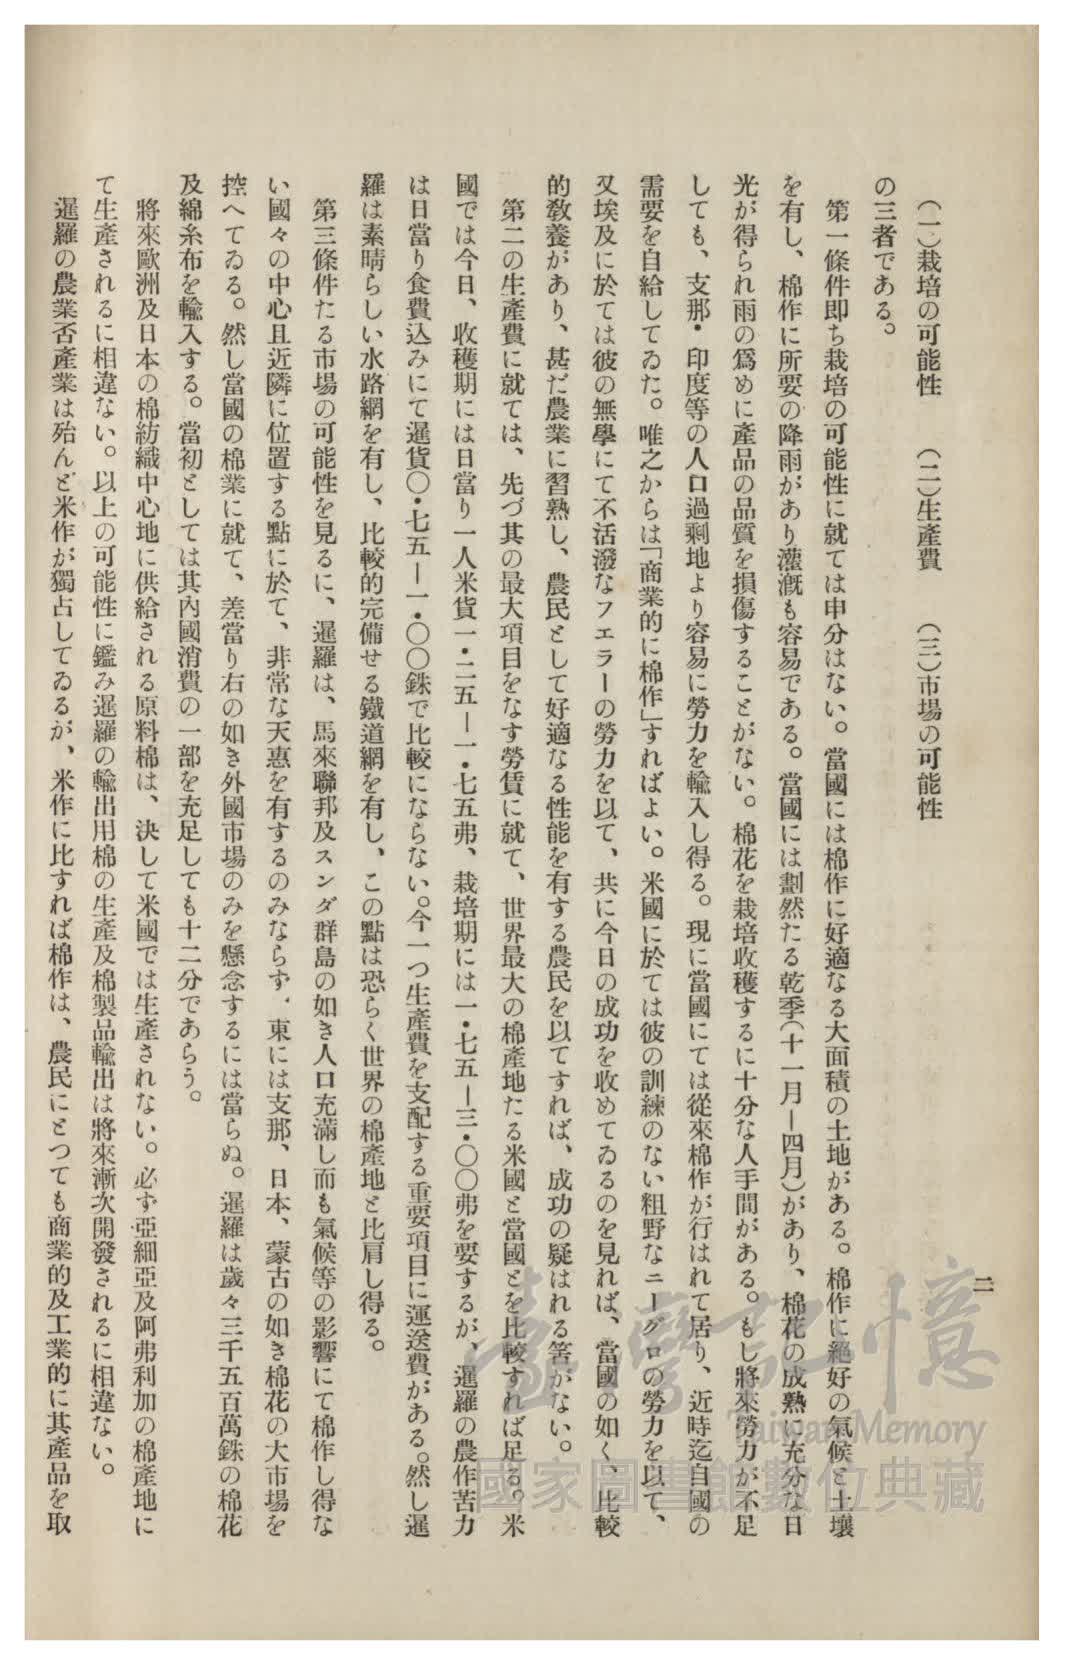 二
（一）栽培の可能性　（二）生產費　（三）市場の可能性
の三者である。
第一條件即ち栽培の可能性に就ては申分はない。當國には棉作に好適なる大面積の土地がある。棉作に絕好の氣候と土壤
を有し、棉作に所要の降雨があり灌漑も容易である。當國には劃然たる乾季（十一月―四月）があり、棉花の成熟に充分な日
光が得られ雨の爲めに產品の品質を損傷することがない。棉花を栽培收穫するに十分な人手間がある。もし將來勞力が不足
しても、支那・印度等の人口過剩地より容易に勞力を輸入し得る。現に當國にては從來棉作が行はれて居り、近時迄自國の
需要を自給してゐた。唯之からは「商業的に棉作」すればよい。米國に於ては彼の訓練のない粗野なニーグロの勞力を以て、
又埃及に於ては彼の無學にて不活潑なフェラーの勞力を以て、共に今日の成功を收めてゐるのを見れば、當國の如く、比較
的敎養があり、甚だ農業に習熟し、農民として好適なる性能を有する農民を以てすれば、成功の疑はれる筈がない。
第二の生產費に就ては、先づ其の最大項目をなす勞賃に就て、世界最大の棉產地たる米國と當國とを比較すれば足る。米
國では今日、收穫期には日當り一人米貨一・二五―一・七五弗、栽培期には一・七五―三・〇〇弗を要するが、暹羅の農作苦力
は日當り食費込みにて暹貨〇・七五―一・〇〇銖で比較にならない。今一つ生產費を支配する重要項目に運送費がある。然し暹
羅は素晴らしい水路網を有し、比較的完備せる鐵道網を有し、この點は恐らく世界の棉產地と比肩し得る。
第三條件たる市場の可能性を見るに、暹羅は、馬來聯邦及スンダ群島の如き人口充滿し而も氣候等の影響にて棉作し得な
い國々の中心且近隣に位置する點に於て、非常な天惠を有するのみならず、東には支那、日本、蒙古の如き棉花の大市場を
控へてゐる。然し當國の棉業に就て、差當り右の如き外國市場のみを懸念するには當らぬ。暹羅は歲々三千五百萬銖の棉花
及綿糸布を輸入する。當初としては其內國消費の一部を充足しても十二分であらう。
將來歐洲及日本の棉紡織中心地に供給される原料棉は、決して米國では生產されない。必ず亞細亞及阿弗利加の棉產地に
て生產されるに相違ない。以上の可能性に鑑み暹羅の輸出用棉の生產及棉製品輸出は將來漸次開發されるに相違ない。
暹羅の農業否產業は殆んど米作が獨占してゐるが、米作に比すれば棉作は、農民にとつても商業的及工業的に其產品を取
臺灣記憶
Taiwan Memory
國家圖書館數位典藏